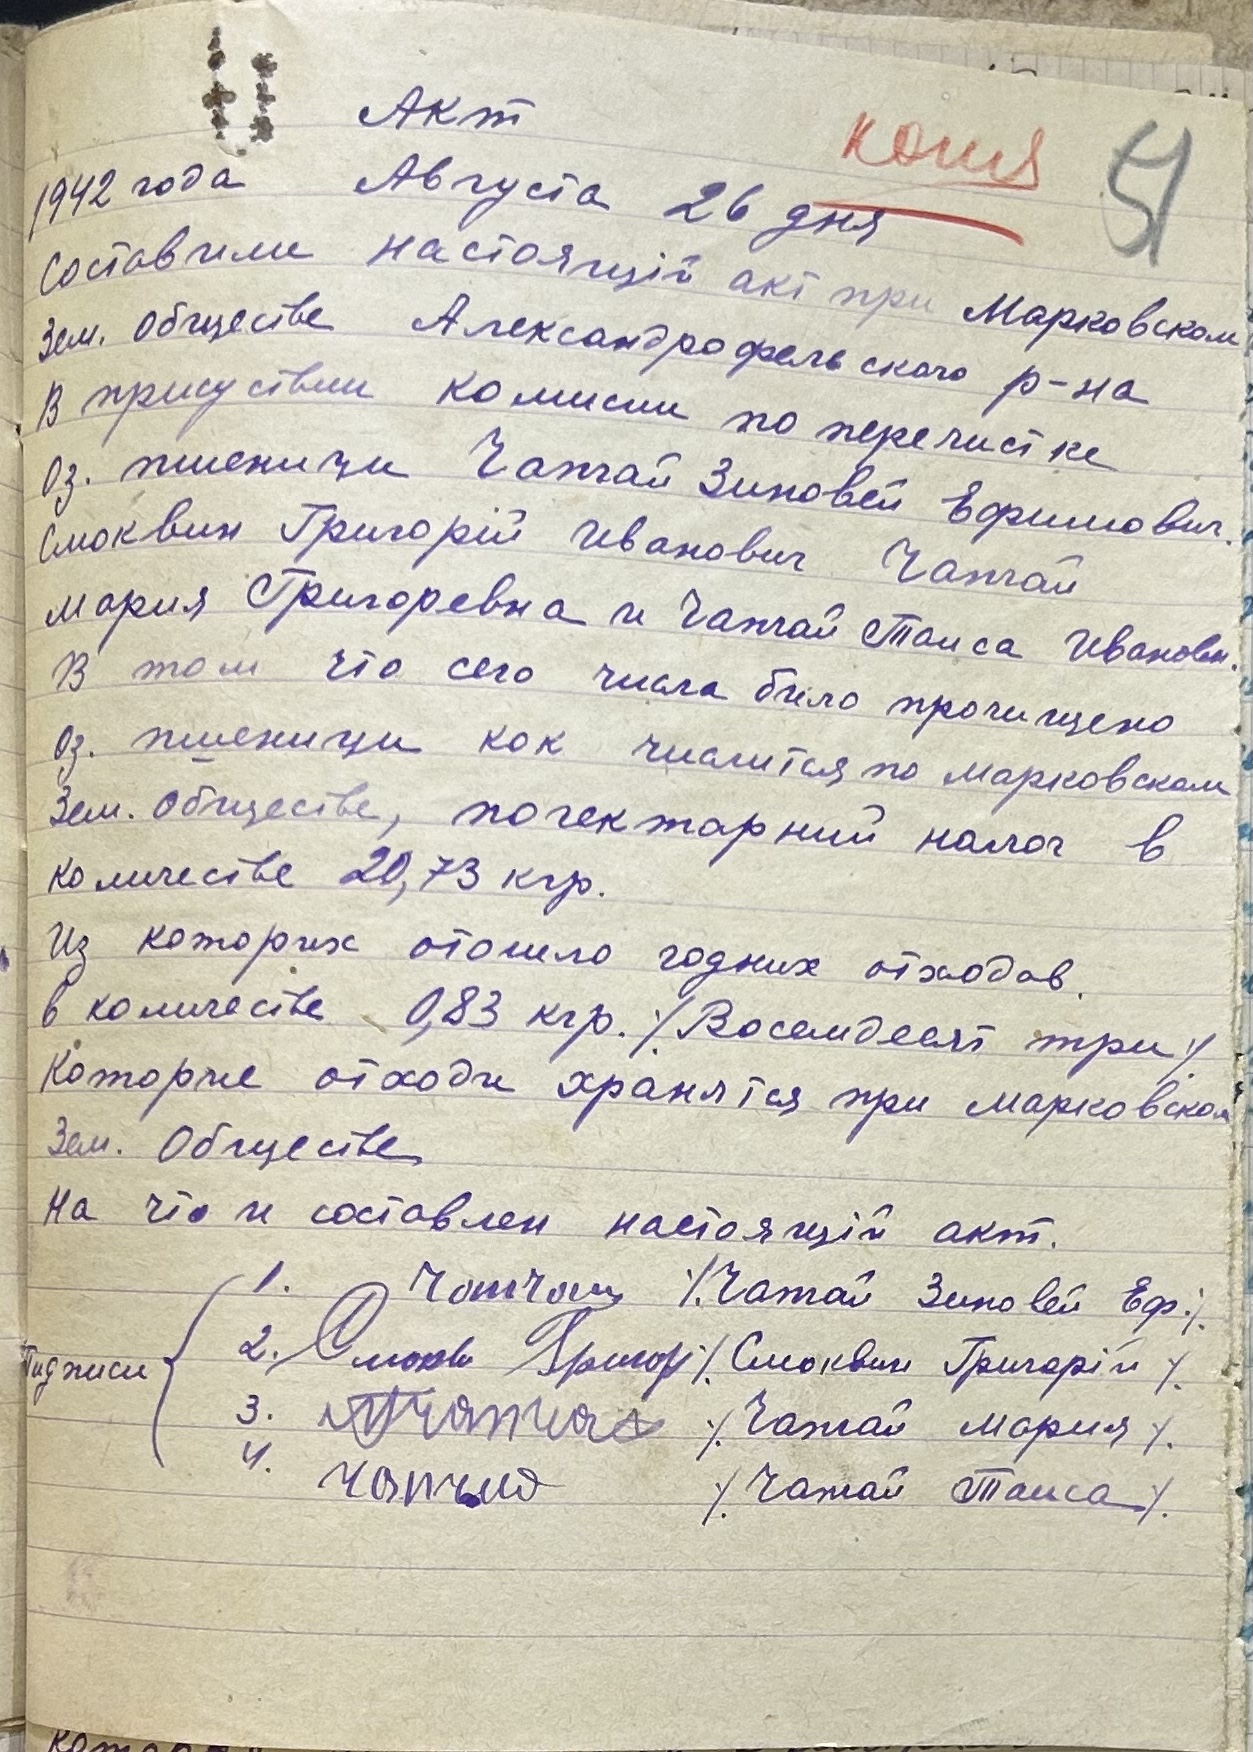 Акт
копия
51
1942 года Августа 26 дня
Составили настоящій акт при Марковском
Зем. Обществе Александрофельского р-на
В присуствии комисии по перечистке
Оз. пшеници Чапчай Зиновей Ефимович.
Смоквин Григорій Иванович Чапчай
Мария Григоревна и Чапчай Таиса Ивановн.
В том что сего числа било прочищено
Оз. пшеници как числится по Марковском
Зем. Обществе, погектарний налог в
количестве 20,73 кгр.
Из которих отошло годних отходов.
в количестве 0,83 кгр. /Восемдесят три/
Которие отходи хранятся при Марковском
Зем. Обществе
На что и составлен настоящій акт.
Пидписи
1. /Чапчай Зиновей Еф./.
2. Смокв Григор /Смоквин Григорій/.
3. /Чапчай Мария/.
4. /Чапчай Таиса/.